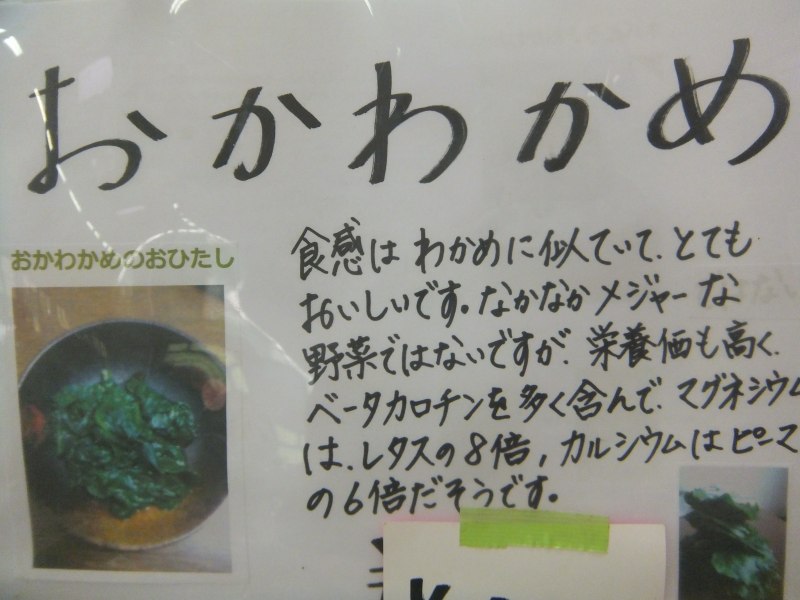 おかわかめ
おかわかめのおひたし
食感は わかめに似ていて、とても
おいしいです。なかなかメジャーな
野菜ではないですが、栄養価も高く、
ベータカロチンを多く含んで、マグネシウム
は、レタスの8倍，カルシウムはピーマ
の6倍だそうです。